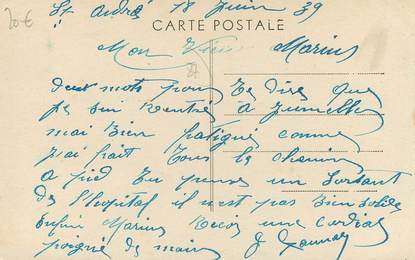 20€
St André 18 Juin 39
CARTE POSTALE
Mon Marius
deux mots pour te dire que
je sui rentré a Jumelles
mai bien fatigué comme
j'ai fait tous le chemin
a pied tu penses un sortant
de l'hopital il n'est pas bien solide
enfin Marius recoi une cordial
poigné de main J